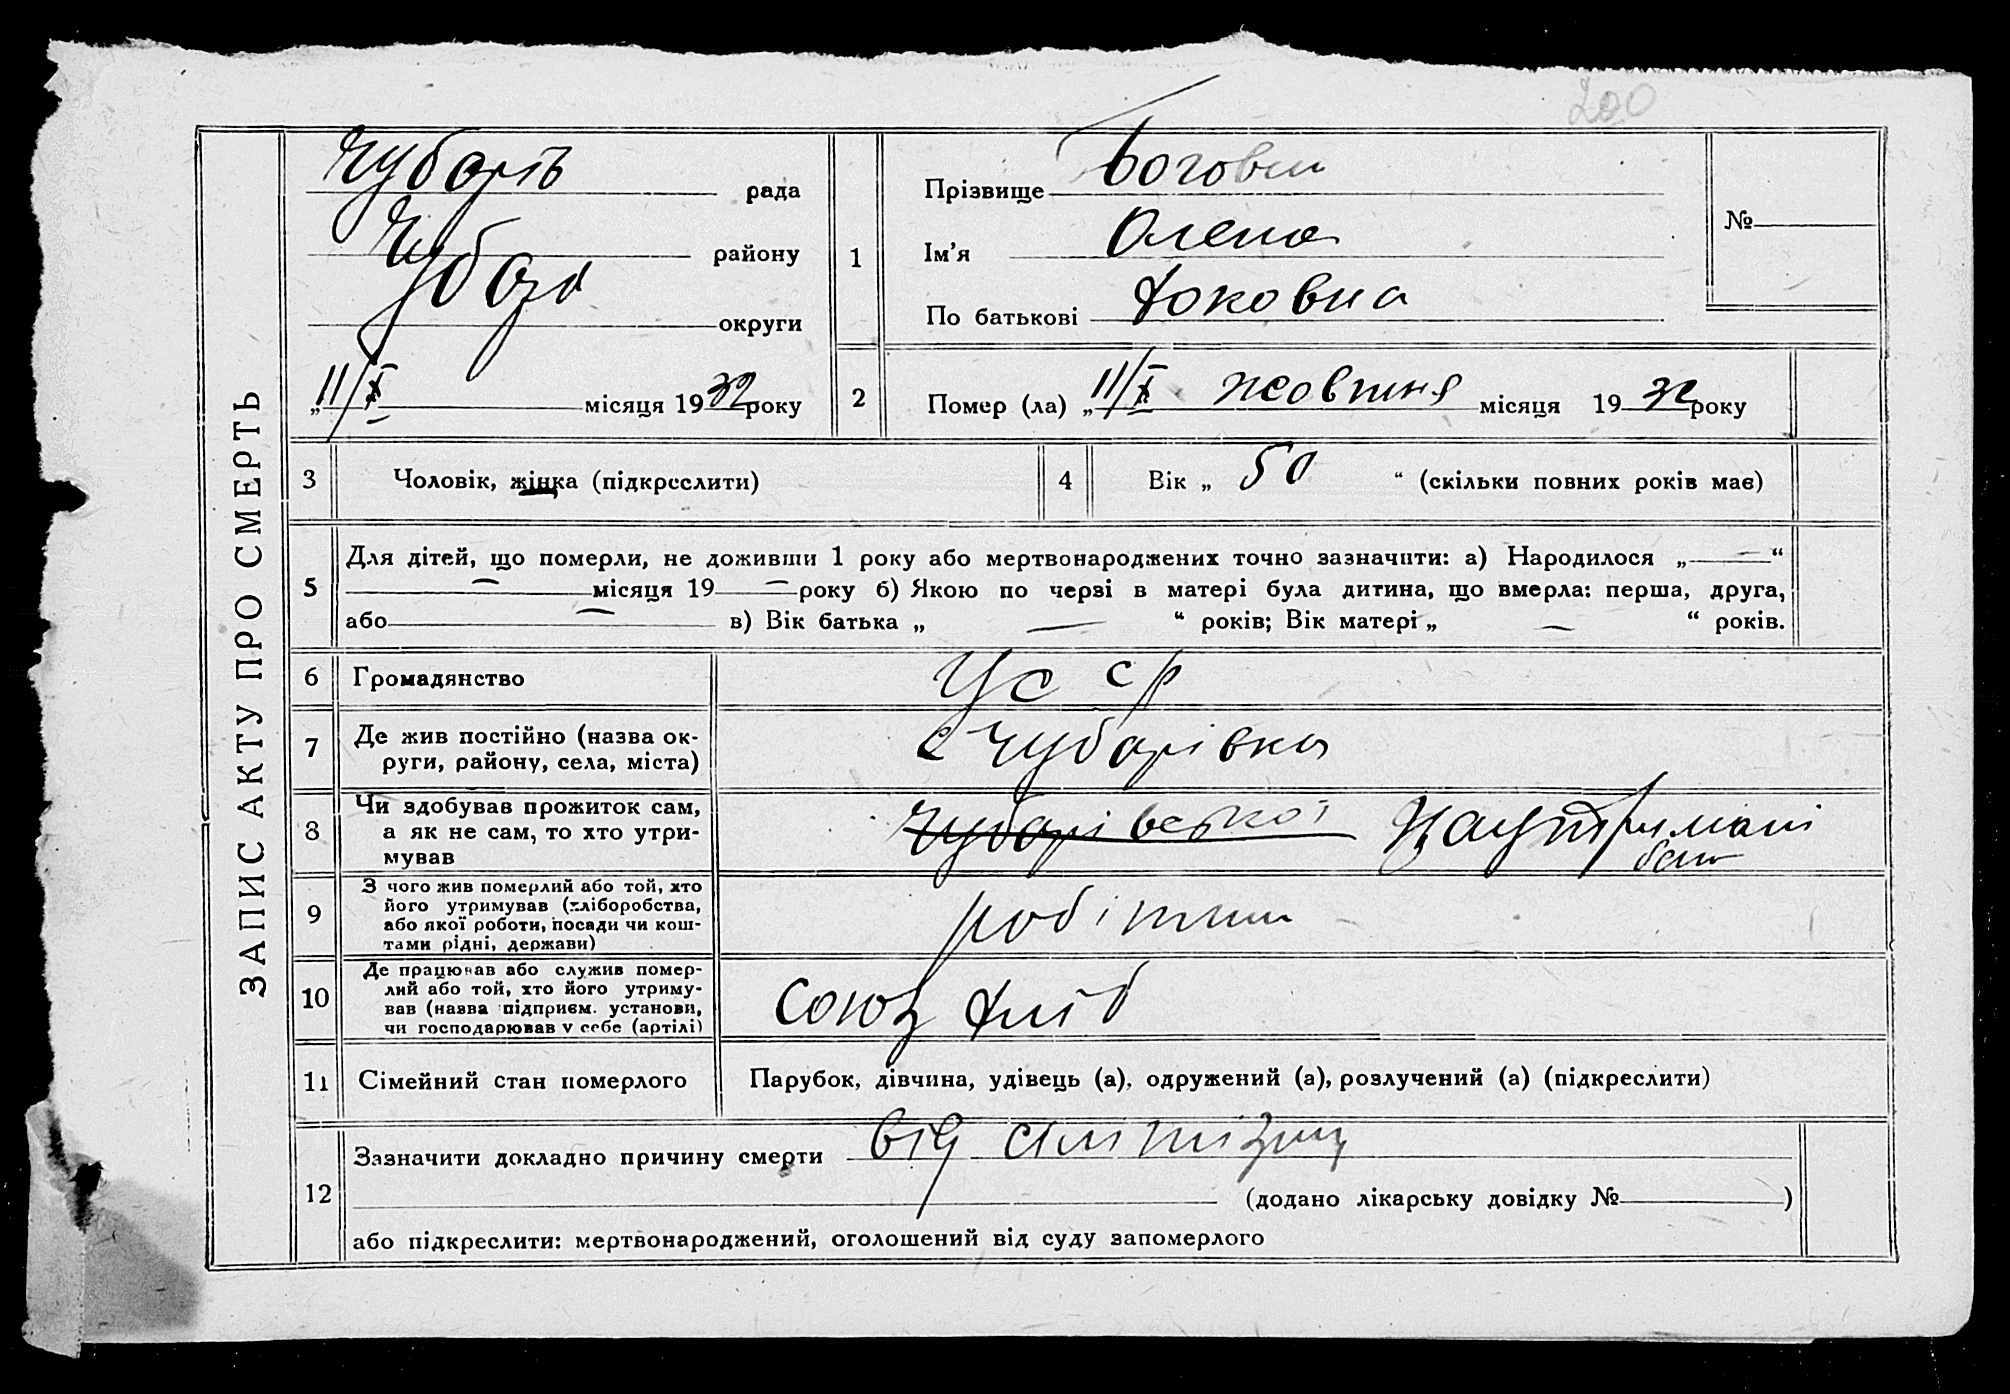 200
ЗАПИС АКТУ ПРО СМЕРТЬ
Чубарів рада
Чубар району
округи
„11/X місяця 1932 року
1
Прізвище Боговин
Ім'я Олена
По батькові Яковна
№
2
Помер (ла) „11/X жовтня місяця 1932 року
3
Чоловік, жінка (підкреслити)
4
Вік „ 50 “ (скільки повних років має)
5
Для дітей, що померли, не доживши 1 року або мертвонароджених точно зазначити: а) Народилося „ — “
— місяця 19 — року б) Якою по черзі в матері була дитина, що вмерла: перша, друга,
або — в) Вік батька „ — “ років; Вік матері „ — “ років.
6
Громадянство
УССР
7
Де жив постійно (назва ок-
руги, району, села, міста)
с Чубарівка
8
Чи здобував прожиток сам,
а як не сам, то хто утри-
мував
Чубарівської На утримані
9
З чого жив померлий або той, хто
його утримував (хліборобства,
або якої роботи, посади чи кош-
тами рідні, держави)
10
Де працював або служив помер-
лий або той, хто його утриму-
вав (назва підприєм. установи,
чи господарював у себе (артілі)
союз хліб
11
Сімейний стан померлого
Парубок, дівчина, удівець (а), одружений (а), розлучений (а) (підкреслити)
12
Зазначити докладно причину смерти від
(додано лікарську довідку № )
або підкреслити: мертвонароджений, оголошений від суду запомерлого